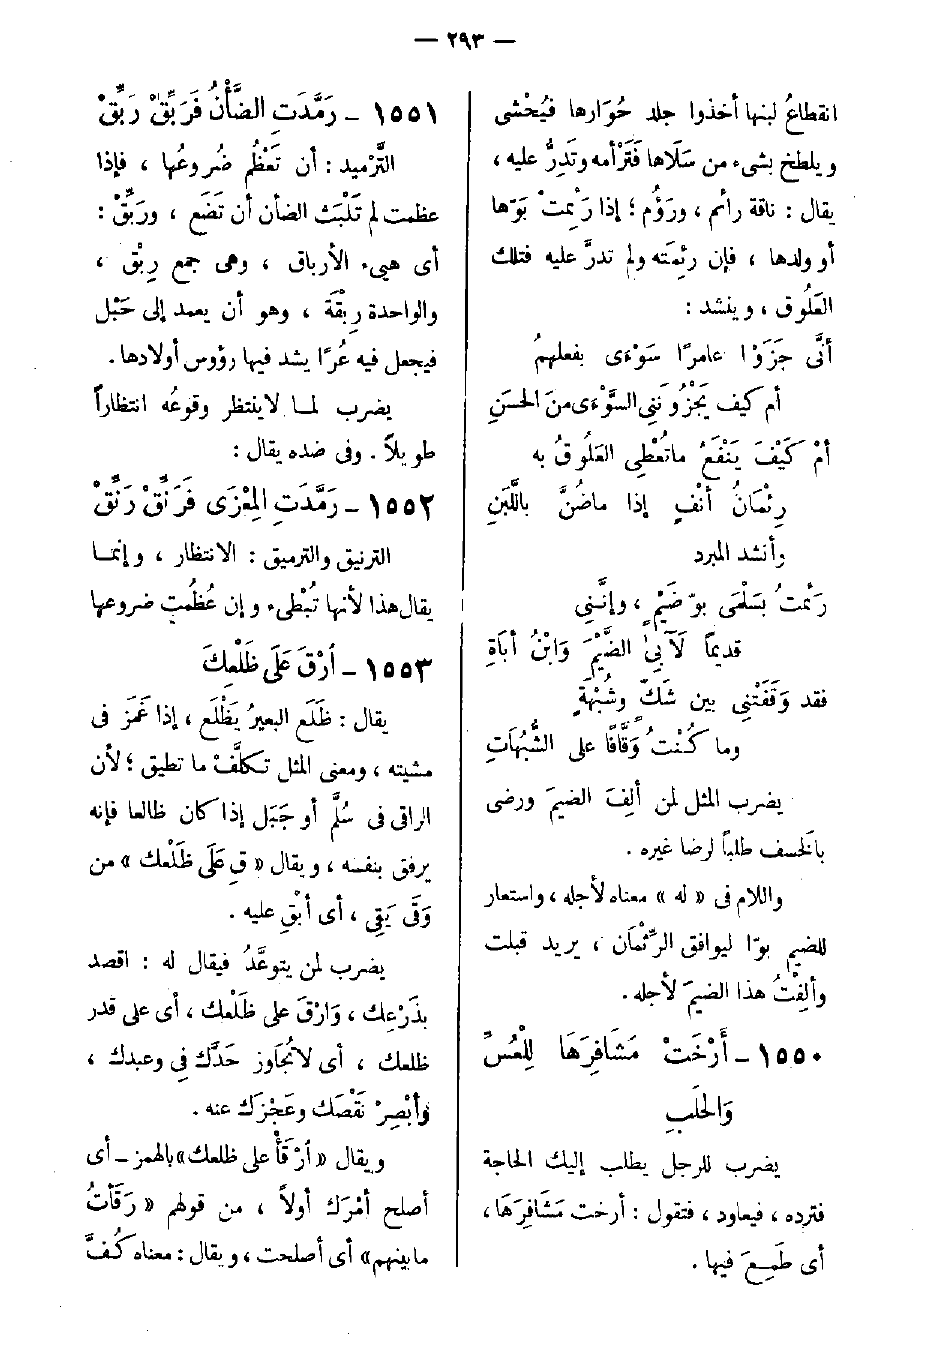 — ٢٩٣ —
انقطاعُ لبنها أخذوا جلد حُوَارها فَيُحْشى
ويلطخ بشىء من سَلَاها فَتَرْأمه وتَدِرُّ عليه ،
يقال : ناقة رائم ، ورَؤُم ؛ إذا رَئِمَتْ بَوّها
أو ولدها ، فإن رئِمَته ولم تدرَّ عليه فتلك
العَلُوق ، وينشد :
أنَّى جَزَوْا عامرًا سَوْءَى بفعلهمُ
أم كيف يَجْزُونَنِي السَّوْءَى منَ الحَسَنِ
أمْ كَيْفَ يَنْفَعُ ماتُعْطِى العَلُوقُ به
رِئْمَانُ أنْفٍ إذا ماضُنَّ باللَّبَنِ
وأنشد المبرد
رَئمتُ بسَلْمَى بوّ ضَيْمٍ ، وإنَّنِي
قديمًا لَآبِى الضَّيْمَ وَابْنُ أباَةِ
فقد وَقَفَتْنِى بين شَكٍّ وشُبْهَةٍ
وما كُنْتُ وَقَّافًا على الشُّبُهَاتِ
يضرب المثل لمن ألِفَ الضيمَ ورضى
بالخَسف طلباً لرضا غيره .
واللام فى « له » معناه لأجله ، واستعار
للضيم بوًّا ليوافق الرِّئْمَان ، يريد قبلت
وألِفْتُ هذا الضيمَ لأجله .
١٥٥٠ – أَرْخَتْ مَشَافِرَهَا لِلْعُسِّ
وَالحَلَبِ
يضرب للرجل يطلب إليك الحاجة
فترده ، فيعاود ، فتقول : أرخت مَشَافِرَهَا ،
أى طَمِعَ فيها .
١٥٥١ – رَمَّدَتِ الضَّأْنُ فَرَبِّقْ رَبِّقْ
التَّرْمِيد : أن تَعْظُم ضُروعُها ، فإذا
عظمت لم تَلْبَث الضأن أن تَضَع ، ورَبِّقْ :
أى هيىء الأرباق ، وهى جمع رِبْق ،
والواحدة رِبْقَة ، وهو أن يعمد إلى حَبْل
فيجعل فيه عُرًا يشد فيها رؤوس أولادها .
يضرب لمـا لاينتظر وقوعُه انتظاراً
طويلاً . وفى ضده يقال :
١٥٥٢ – رَمَّدَتِ المِعْزَى فَرَنِّقْ رَنِّقْ
الترنيق والترميق : الانتظار ، وإنمـا
يقال هذا لأنها تُبْطِىء وإن عُظمَت ضروعها
١٥٥٣ – أرْقَ عَلَى ظَلْعِكَ
يقال : ظَلَع البعيرُ يَظْلَع ، إذا غَمَز فى
مشيته ، ومعنى المثل تـكلَّفْ ما تطيق ؛ لأن
الراقى فى سُلَّم أو جَبَل إذا كان ظالعا فإنه
يرفق بنفسه ، ويقال « قِ عَلَى ظَلْعك » من
وَقَى يَقِى ، أى أبْقِ عليه .
يضرب لمن يتوعَّدُ فيقال له : اقصد
بذَرْعك ، وَارْقَ على ظَلْعك ، أى على قدر
ظلعك ، أى لاتُجَاوز حَدَّك فى وعيدك ،
وأبْصِرْ نَقْصَك وعَجْزَك عنه .
ويقال « أرْقَأْ على ظلعك» بالهمز – أى
أصلح أمْرَك أولاً ، من قولهم « رَقَأتُ
مابينهم» أى أصلحت ، ويقال : معناه كُفَّ